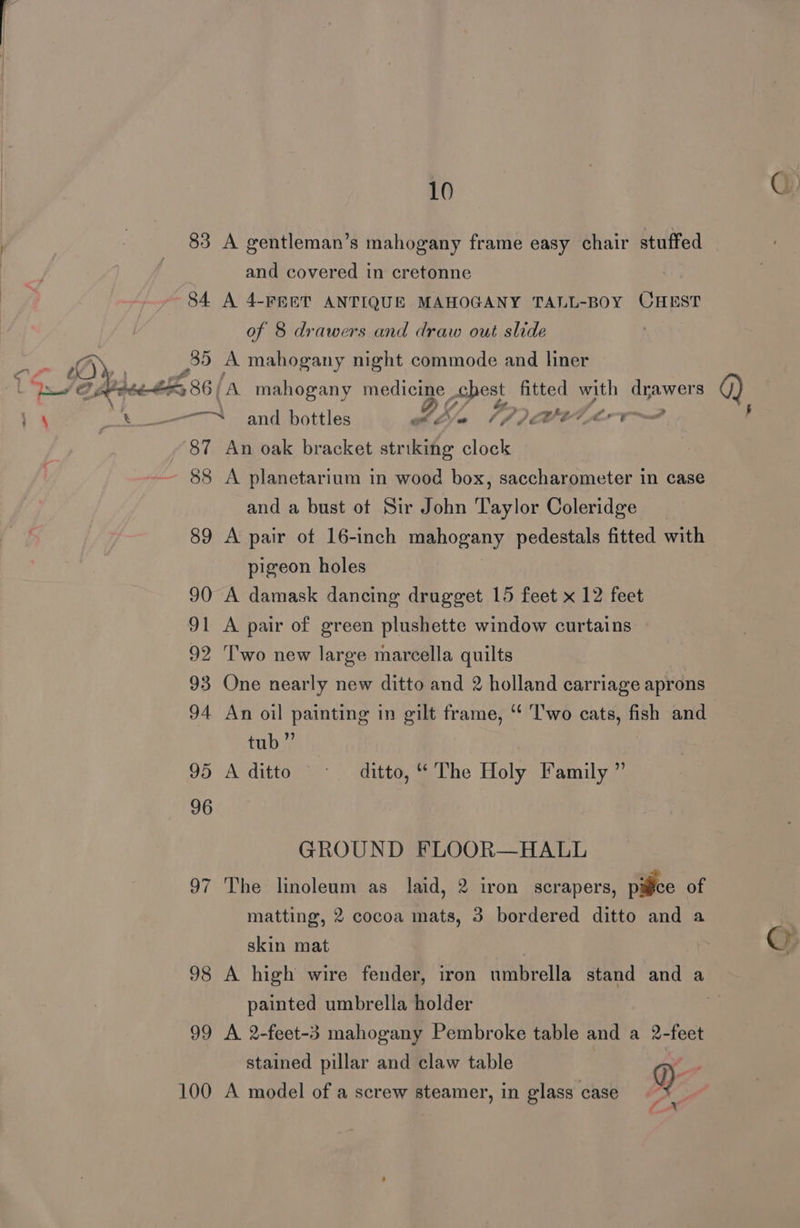 10
83 A gentleman's mahogany frame easy chair stuffed
and covered in cretonne
84 A 4-FEET ANTIQUE MAHOGANY TALL-BOY CHEST
of 8 drawers and draw out slide
85 A mahogany night commode and liner
86 A mahogany medicine chest fitted with drawers
and bottles
87 An oak bracket striking clock
88 A planetarium in wood box, saccharometer in case
and a bust of Sir John Taylor Coleridge
89 A pair of 16-inch mahogany pedestals fitted with
pigeon holes
90 A damask dancing drugget 15 feet x 12 feet
91 A pair of green plushette window curtains
92 Two new large marcella quilts
93 One nearly new ditto and 2 holland carriage aprons
94 An oil painting in gilt frame, “ Two cats, fish and
tub ”
95 A ditto ditto, “ The Holy Family ”
96
GROUND FLOOR—HALL
97 The linoleum as laid, 2 iron scrapers, piece of
matting, 2 cocoa mats, 3 bordered ditto and a
skin mat
98 A high wire fender, iron umbrella stand and a
painted umbrella holder
99 A 2-feet-3 mahogany Pembroke table and a 2-feet
stained pillar and claw table
100 A model of a screw steamer, in glass case